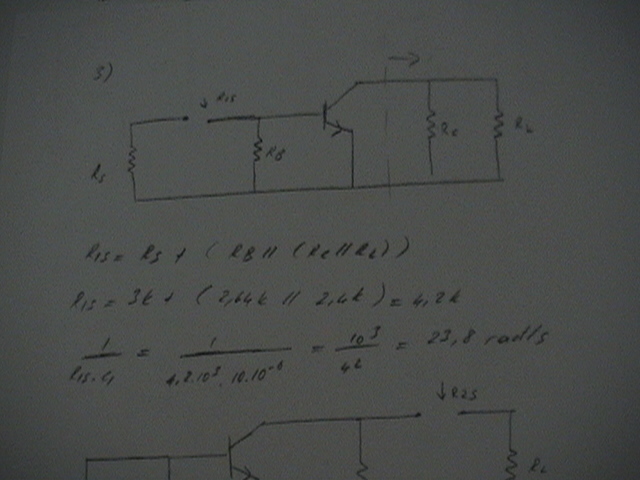 3)
R1s
Rs
RB
Rc
RL
R1s = Rs + (RB // (Rc // RL))
R1s = 3k + (2,64k // 2,4k) = 4,2k
1 / R1s.C1 = 1 / 4,2.10³.10.10⁻⁶ = 10³ / 42 = 23,8 rad/s
R2s
RL